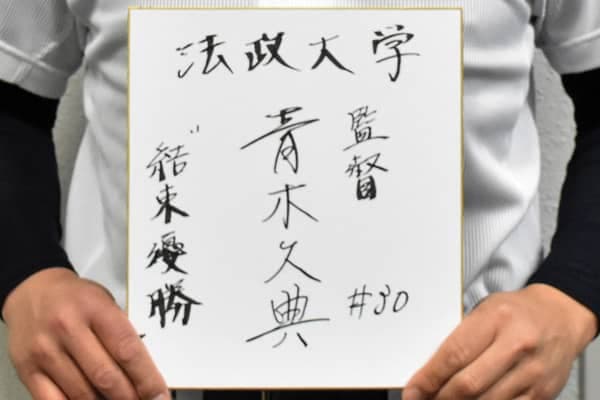 法政大学
監督
青木久典
#30
"結束優勝"